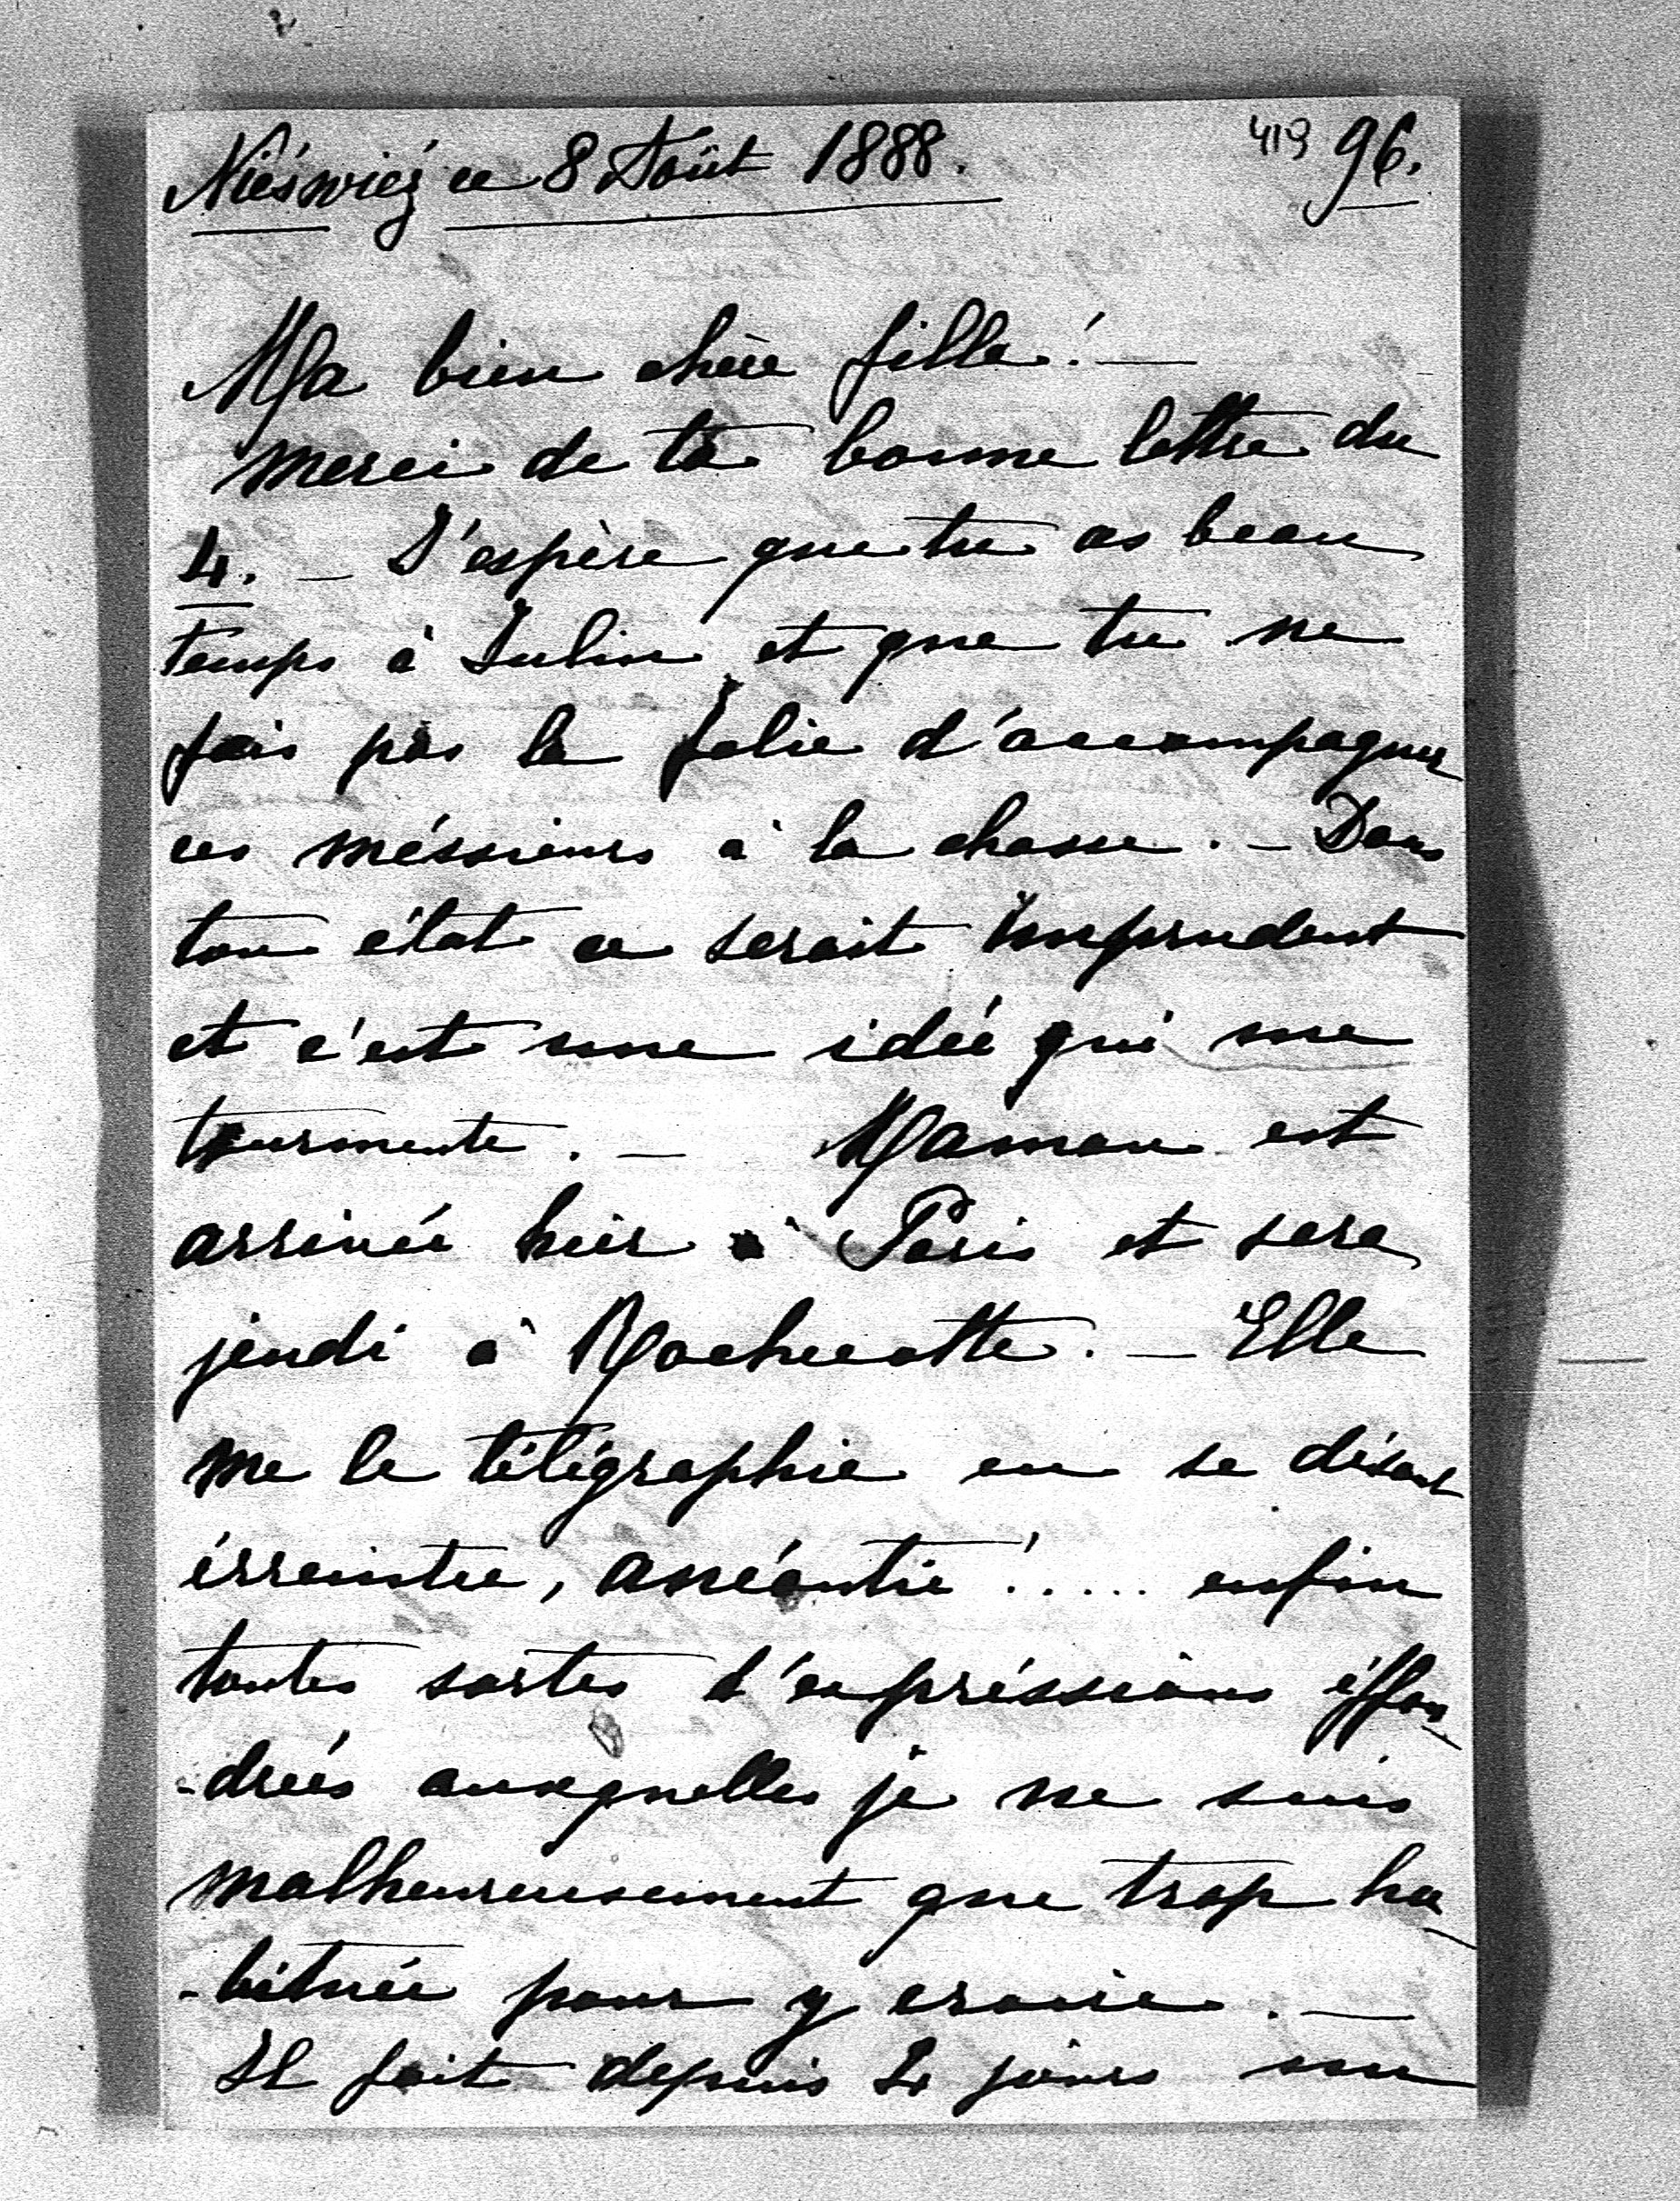 Nieświéź ce 8 Août 1888.
419 96.
Ma bien chère fille! —
merci de ta bonne lettre du
4. — J'espère que tu as beau
temps à Julin et que tu ne
fais pas la folie d'accompagner
ces méssieurs à la chasse. — Dans
ton état ce serait imprudent
et c'est une idée qui me
tourmente. — Maman est
arrivée hier à Paris et sera
jeudi à Rochecotte. — Elle
me le télégraphie en se disant
érreintée, anéantie!..... enfin
toutes sortes d'expréssions éffon-
-drées auxquelles je ne suis
malheureusement que trop ha-
-bituée pour y croire. —
Il fait depuis 2 jours un